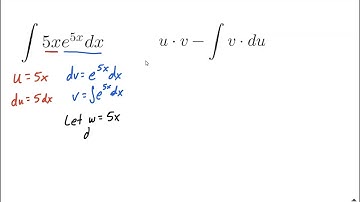 ∫ 5xe^{5x}dx
u · v − ∫ v · du
u = 5x
dv = e^{5x}dx
du = 5dx
v = ∫e^{5x}dx
Let w = 5x
d